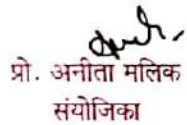 प्रो. अनीता मलिक
संयोजिका